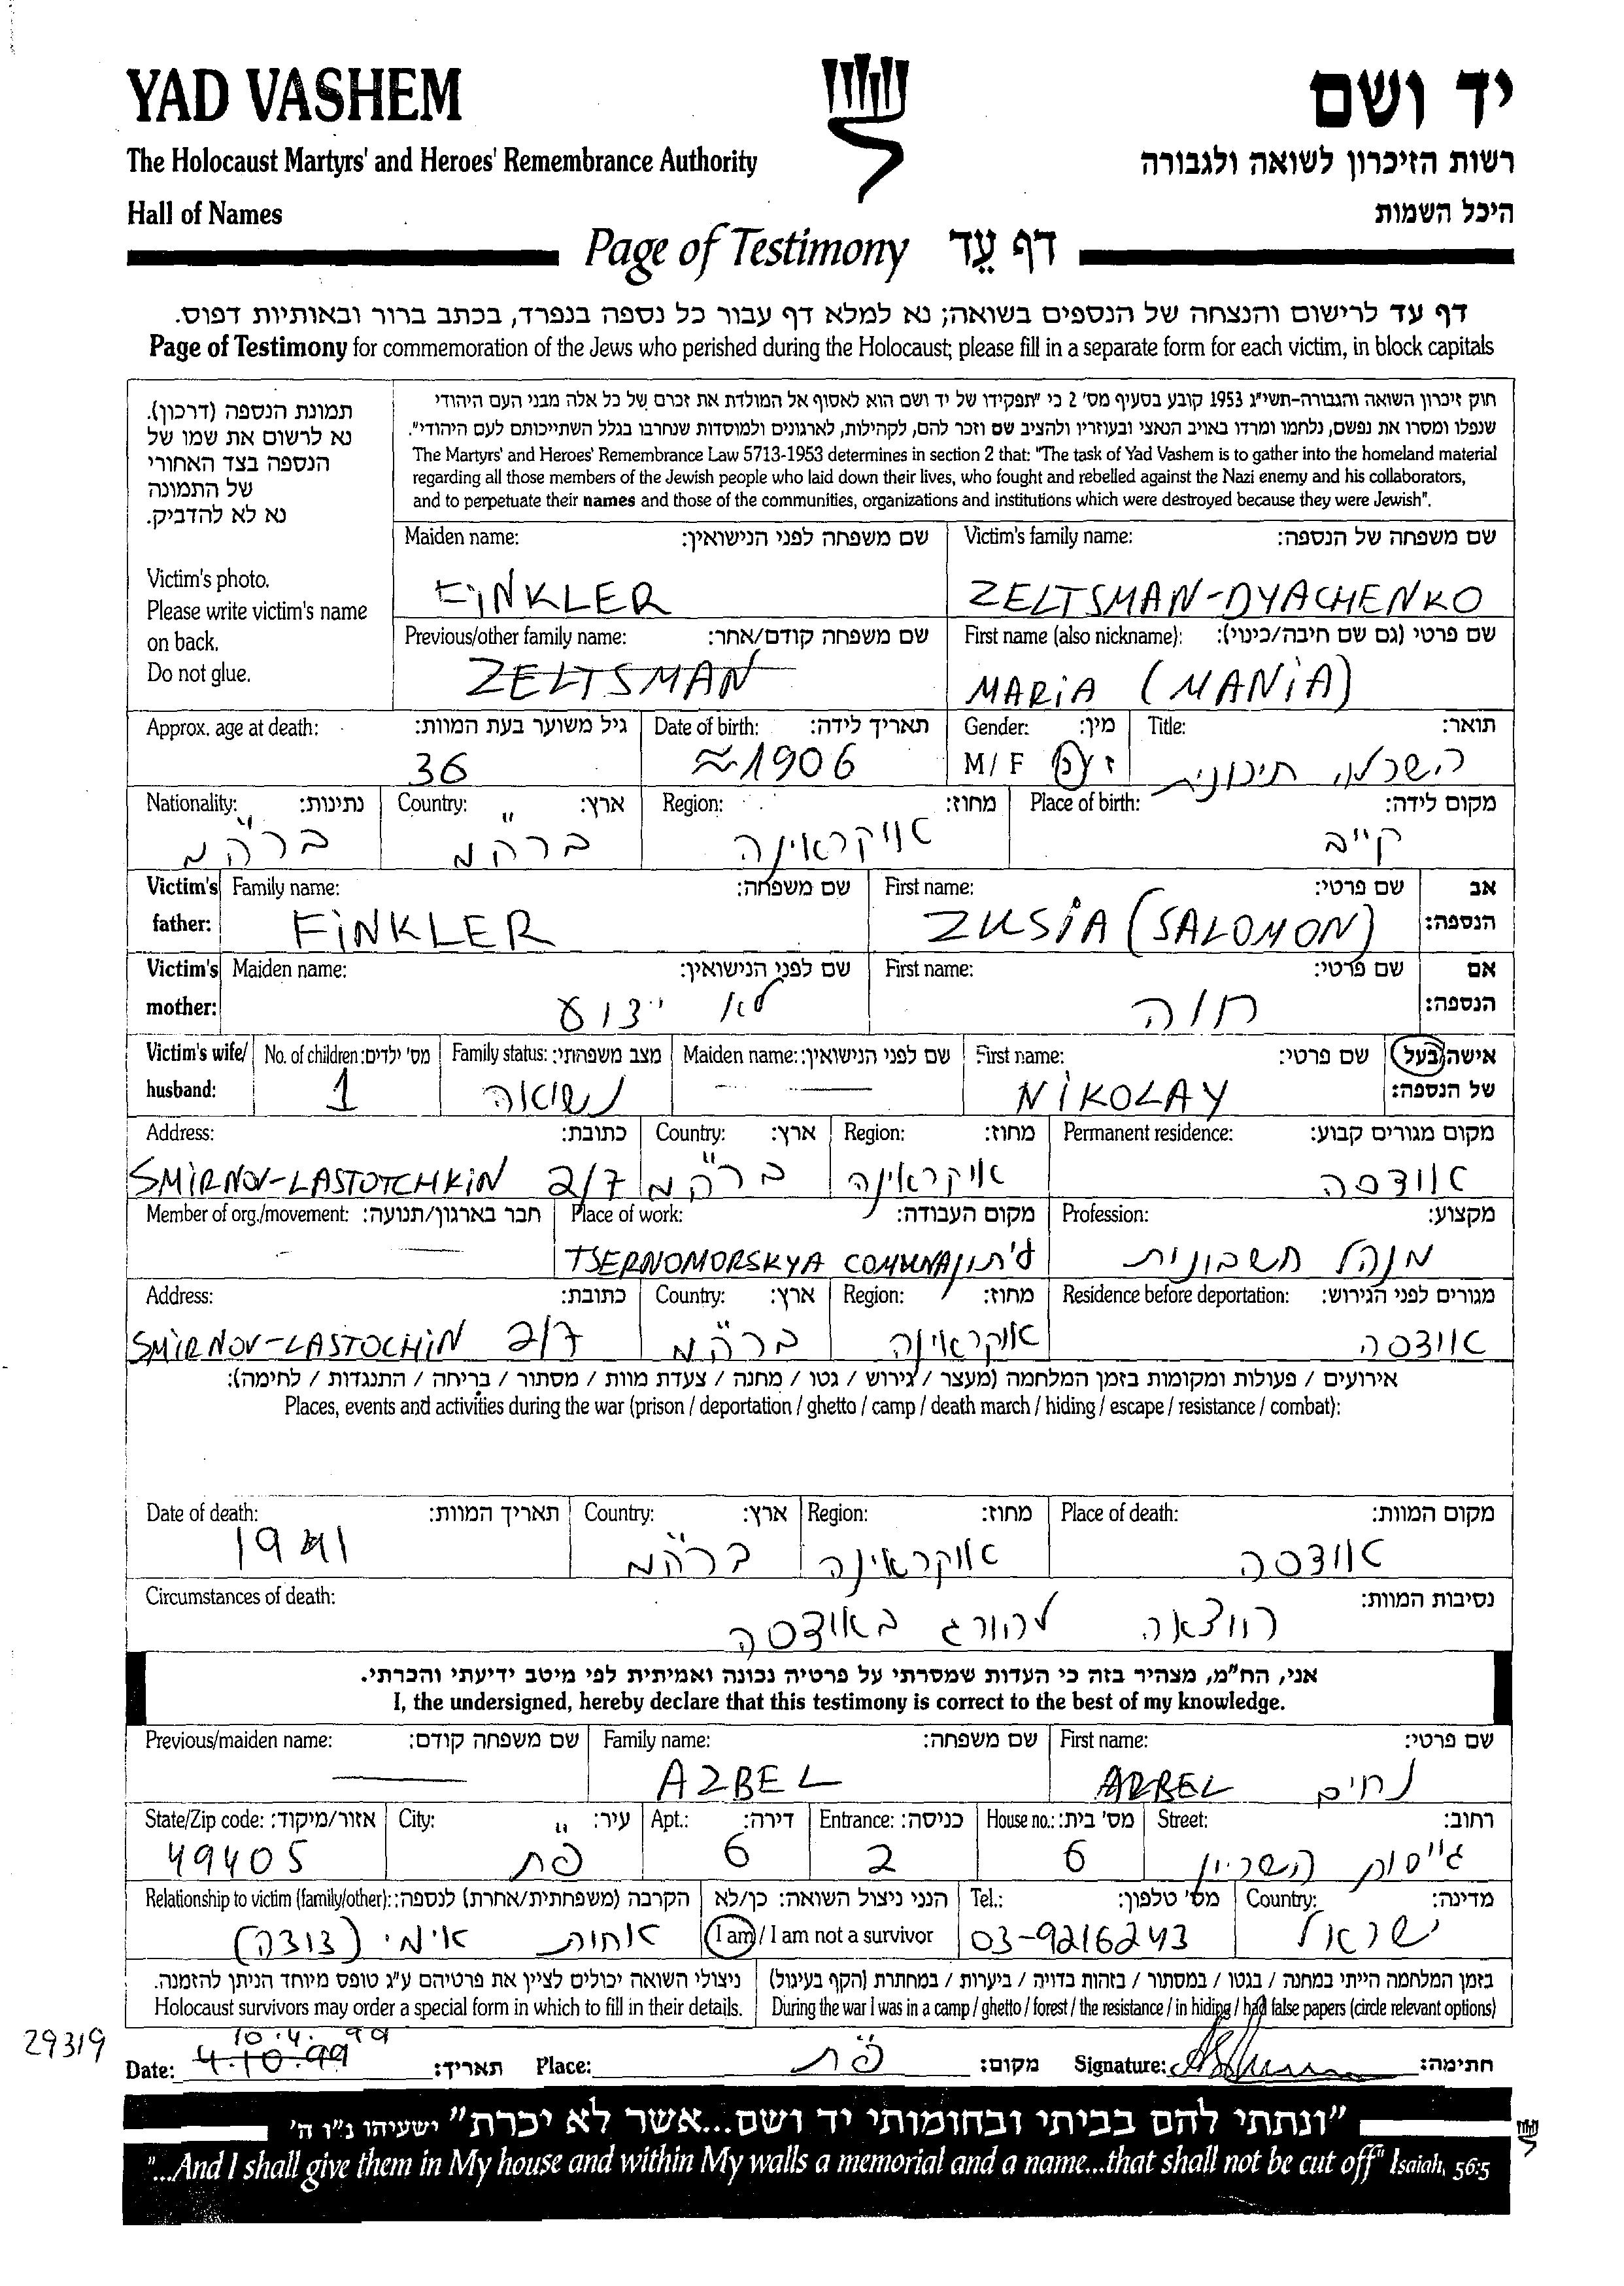 YAD VASHEM
יד ושם
The Holocaust Martyrs' and Heroes' Remembrance Authority
רשות הזיכרון לשואה ולגבורה
Hall of Names
היכל השמות
Page of Testimony דף עֵד
דף עד לרישום והנצחה של הנספים בשואה; נא למלא דף עבור כל נספה בנפרד, בכתב ברור ובאותיות דפוס.
Page of Testimony for commemoration of the Jews who perished during the Holocaust; please fill in a separate form for each victim, in block capitals
תמונת הנספה (דרכון).
נא לרשום את שמו של
הנספה בצד האחורי
של התמונה
נא לא להדביק.
Victim's photo.
Please write victim's name
on back.
Do not glue.
חוק זיכרון השואה והגבורה-תשי"ג 1953 קובע בסעיף מס' 2 כי "תפקידו של יד ושם הוא לאסוף אל המולדת את זכרם של כל אלה מבני העם היהודי
שנפלו ומסרו את נפשם, נלחמו ומרדו באויב הנאצי ובעוזריו ולהציב שם וזכר להם, לקהילות, לארגונים ולמוסדות שנחרבו בגלל השתייכותם לעם היהודי".
The Martyrs' and Heroes' Remembrance Law 5713-1953 determines in section 2 that: "The task of Yad Vashem is to gather into the homeland material
regarding all those members of the Jewish people who laid down their lives, who fought and rebelled against the Nazi enemy and his collaborators,
and to perpetuate their names and those of the communities, organizations and institutions which were destroyed because they were Jewish".
Maiden name: שם משפחה לפני הנישואין: Victim's family name: שם משפחה של הנספה:
FiNKLER ZELTSMAN-DYACHENKO
Previous/other family name: שם משפחה קודם/אחר: First name (also nickname): שם פרטי (גם שם חיבה/כינוי):
ZELTSMAN MARiA (MANiA)
Approx. age at death: גיל משוער בעת המוות: Date of birth: תאריך לידה: Gender: מין: Title: תואר:
36 ≈1906 M/F ז/נ השכלה תיכונית
Nationality: נתינות: Country: ארץ: Region: מחוז: Place of birth: מקום לידה:
ברה"מ ברה"מ אויקראינה קייב
Victim's father: Family name: שם משפחה: First name: שם פרטי: אב הנספה:
FiNKLER ZUSiA (SALOMON)
Victim's mother: Maiden name: שם לפני הנישואין: First name: שם פרטי: אם הנספה:
לא ידוע חוה
Victim's wife/husband: No. of children: מס' ילדים: Family status: מצב משפחתי: Maiden name: שם לפני הנישואין: First name: שם פרטי: אישה/בעל של הנספה:
1 נשואה — NiKOLAY
Address: כתובת: Country: ארץ: Region: מחוז: Permanent residence: מקום מגורים קבוע:
SMiRNOV-LASTOTCHKiN 2/7 ברה"מ אוקראינה אודסה
Member of org./movement: חבר בארגון/תנועה: Place of work: מקום העבודה: Profession: מקצוע:
— TSERNOMORSKYA COMMUNA מנהל חשבונות
Address: כתובת: Country: ארץ: Region: מחוז: Residence before deportation: מגורים לפני הגירוש:
SMiRNOV-LASTOCHiN 2/7 ברה"מ אוקראינה אודסה
אירועים / פעולות ומקומות בזמן המלחמה (מעצר / גירוש / גטו / מחנה / צעדת מוות / מסתור / בריחה / התנגדות / לחימה):
Places, events and activities during the war (prison / deportation / ghetto / camp / death march / hiding / escape / resistance / combat):
Date of death: תאריך המוות: Country: ארץ: Region: מחוז: Place of death: מקום המוות:
1941 ברה"מ אוקראינה אודסה
Circumstances of death: נסיבות המוות:
הוצאה להורג באודסה
אני, הח"מ, מצהיר בזה כי העדות שמסרתי על פרטיה נכונה ואמיתית לפי מיטב ידיעתי והכרתי.
I, the undersigned, hereby declare that this testimony is correct to the best of my knowledge.
Previous/maiden name: שם משפחה קודם: Family name: שם משפחה: First name: שם פרטי:
— AZBEL AZBEL נחים
State/Zip code: אזור/מיקוד: City: עיר: Apt.: דירה: Entrance: כניסה: House no.: מס' בית: Street: רחוב:
49405 פ"ת 6 2 6 גייסות השריון
Relationship to victim (family/other): הקרבה (משפחתית/אחרת) לנספה: הנני ניצול השואה: כן/לא Tel.: מס' טלפון: Country: מדינה:
אחות אימי (דודה) I am / I am not a survivor 03-9216243 ישראל
ניצולי השואה יכולים לציין את פרטיהם ע"ג טופס מיוחד הניתן להזמנה. בזמן המלחמה הייתי במחנה / בגטו / במסתור / בזהות בדויה / ביערות / במחתרת (הקף בעיגול)
Holocaust survivors may order a special form in which to fill in their details. During the war I was in a camp / ghetto / forest / the resistance / in hiding / had false papers (circle relevant options)
29319
10.4.99
Date: 4.10.99 תאריך: Place: פ"ת מקום: Signature: חתימה:
"ונתתי להם בביתי ובחומותי יד ושם...אשר לא יכרת" ישעיהו נ"ו ה'
"...And I shall give them in My house and within My walls a memorial and a name...that shall not be cut off" Isaiah, 56:5